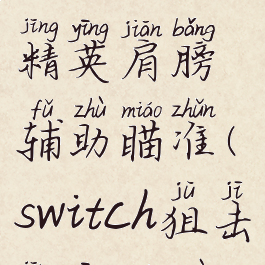 jīng yīng jiān bǎng
精英肩膀
fǔ zhù miáo zhǔn
辅助瞄准(
jū jī
switch狙击